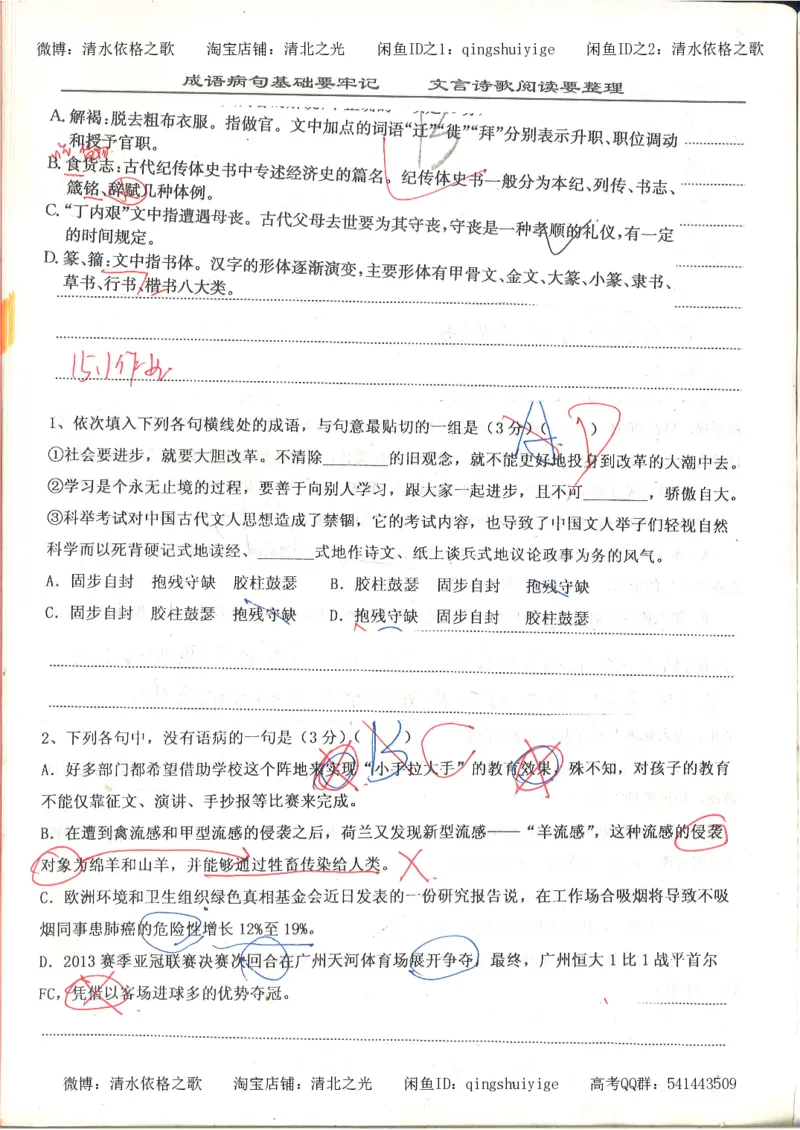 微博：清水依格之歌 淘宝店铺：清北之光 闲鱼ID之1：qingshuiyige 闲鱼ID之2：清水依格之歌
成语病句基础要牢记 文言诗歌阅读要整理
A.解褐：脱去粗布衣服。指做官。文中加点的词语“迁”“徙”“拜”分别表示升职、职位调动
和授予官职。
B.食货志：古代纪传体史书中专述经济史的篇名。纪传体史书一般分为本纪、列传、书志、
箴铭、辞赋几种体例。
C.“丁内艰”文中指遭遇母丧。古代父母去世要为其守丧，守丧是一种孝顺的礼仪，有一定
的时间规定。
D.篆、籀：文中指书体。汉字的形体逐渐演变，主要形体有甲骨文、金文、大篆、小篆、隶书、
草书、行书、楷书八大类。
15.1作业
1、依次填入下列各句横线处的成语，与句意最贴切的一组是（3分）（ A D ）
①社会要进步，就要大胆改革。不清除________的旧观念，就不能更好地投身到改革的大潮中去。
②学习是个永无止境的过程，要善于向别人学习，跟大家一起进步，且不可________，骄傲自大。
③科举考试对中国古代文人思想造成了禁锢，它的考试内容，也导致了中国文人举子们轻视自然
科学而以死背硬记式地读经、_______式地作诗文、纸上谈兵式地议论政事为务的风气。
A．固步自封 抱残守缺 胶柱鼓瑟 B．胶柱鼓瑟 固步自封 抱残守缺
C．固步自封 胶柱鼓瑟 抱残守缺 D．抱残守缺 固步自封 胶柱鼓瑟
2、下列各句中，没有语病的一句是（3分）（ B C ）
A．好多部门都希望借助学校这个阵地来实现“小手拉大手”的教育效果，殊不知，对孩子的教育
不能仅靠征文、演讲、手抄报等比赛来完成。
B．在遭到禽流感和甲型流感的侵袭之后，荷兰又发现新型流感——“羊流感”，这种流感的侵袭
对象为绵羊和山羊，并能够通过牲畜传染给人类。
C．欧洲环境和卫生组织绿色真相基金会近日发表的一份研究报告说，在工作场合吸烟将导致不吸
烟同事患肺癌的危险性增长 12%至 19%。
D．2013 赛季亚冠联赛决赛次回合在广州天河体育场展开争夺，最终，广州恒大 1 比 1 战平首尔
FC，凭借以客场进球多的优势夺冠。
微博：清水依格之歌 淘宝店铺：清北之光 闲鱼ID：qingshuiyige 高考QQ群：541443509